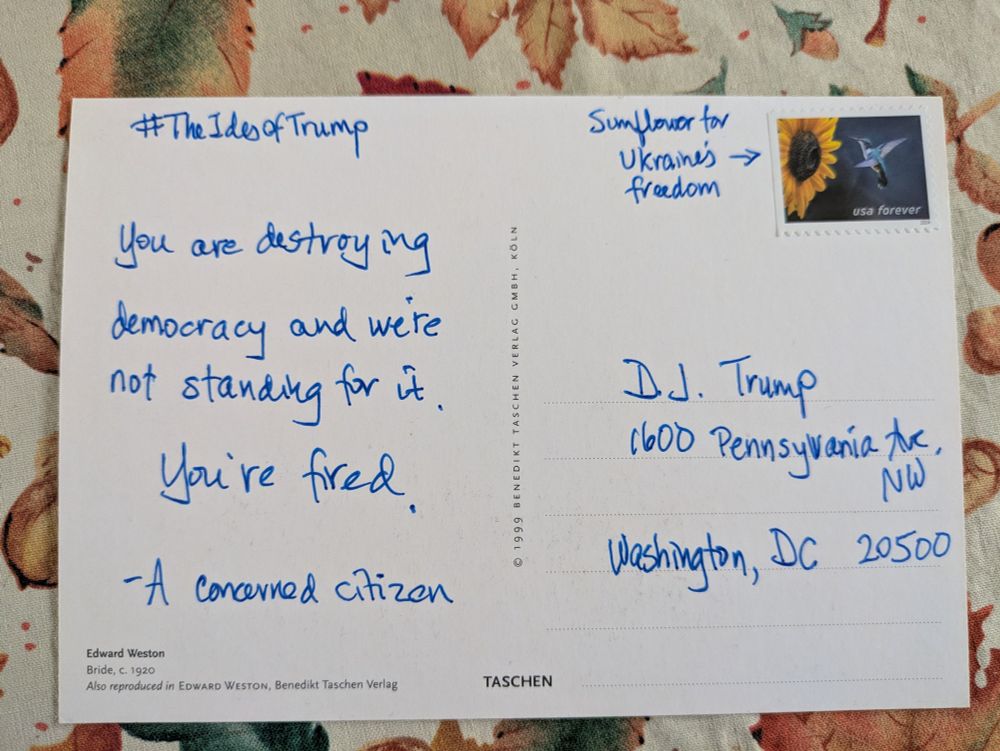 #TheIdesofTrump
You are destroying
democracy and we're
not standing for it.
You're fired.
-A concerned citizen
Edward Weston
Bride, c. 1920
Also reproduced in EDWARD WESTON, Benedikt Taschen Verlag
© 1999 BENEDIKT TASCHEN VERLAG GMBH, KÖLN
TASCHEN
Sunflower for
Ukraine's →
freedom
usa forever
D.J. Trump
1600 Pennsylvania Ave.
NW
Washington, DC 20500